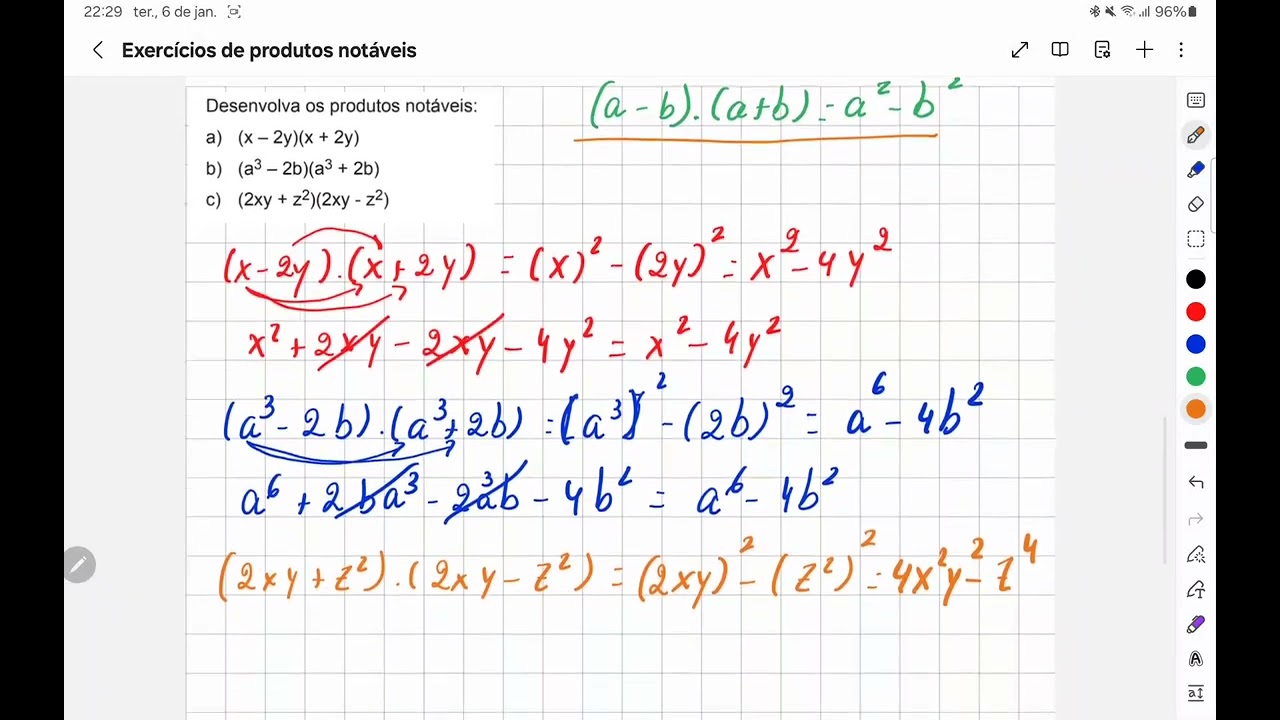 22:29 ter., 6 de jan. 96%
Exercícios de produtos notáveis
Desenvolva os produtos notáveis:
a) (x – 2y)(x + 2y)
b) (a³ – 2b)(a³ + 2b)
c) (2xy + z²)(2xy - z²)
(a - b).(a+b) = a² - b²
(x - 2y).(x + 2y) = (x)² - (2y)² = x² - 4y²
x² + 2xy - 2xy - 4y² = x² - 4y²
(a³ - 2b).(a³ + 2b) = (a³)² - (2b)² = a⁶ - 4b²
a⁶ + 2ba³ - 2a³b - 4b² = a⁶ - 4b²
(2xy + z²).(2xy - z²) = (2xy)² - (z²)² = 4x²y² - z⁴